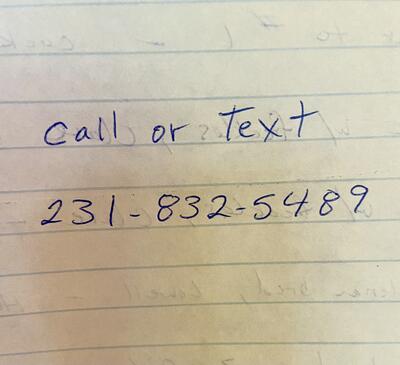 call or text
231-832-5489